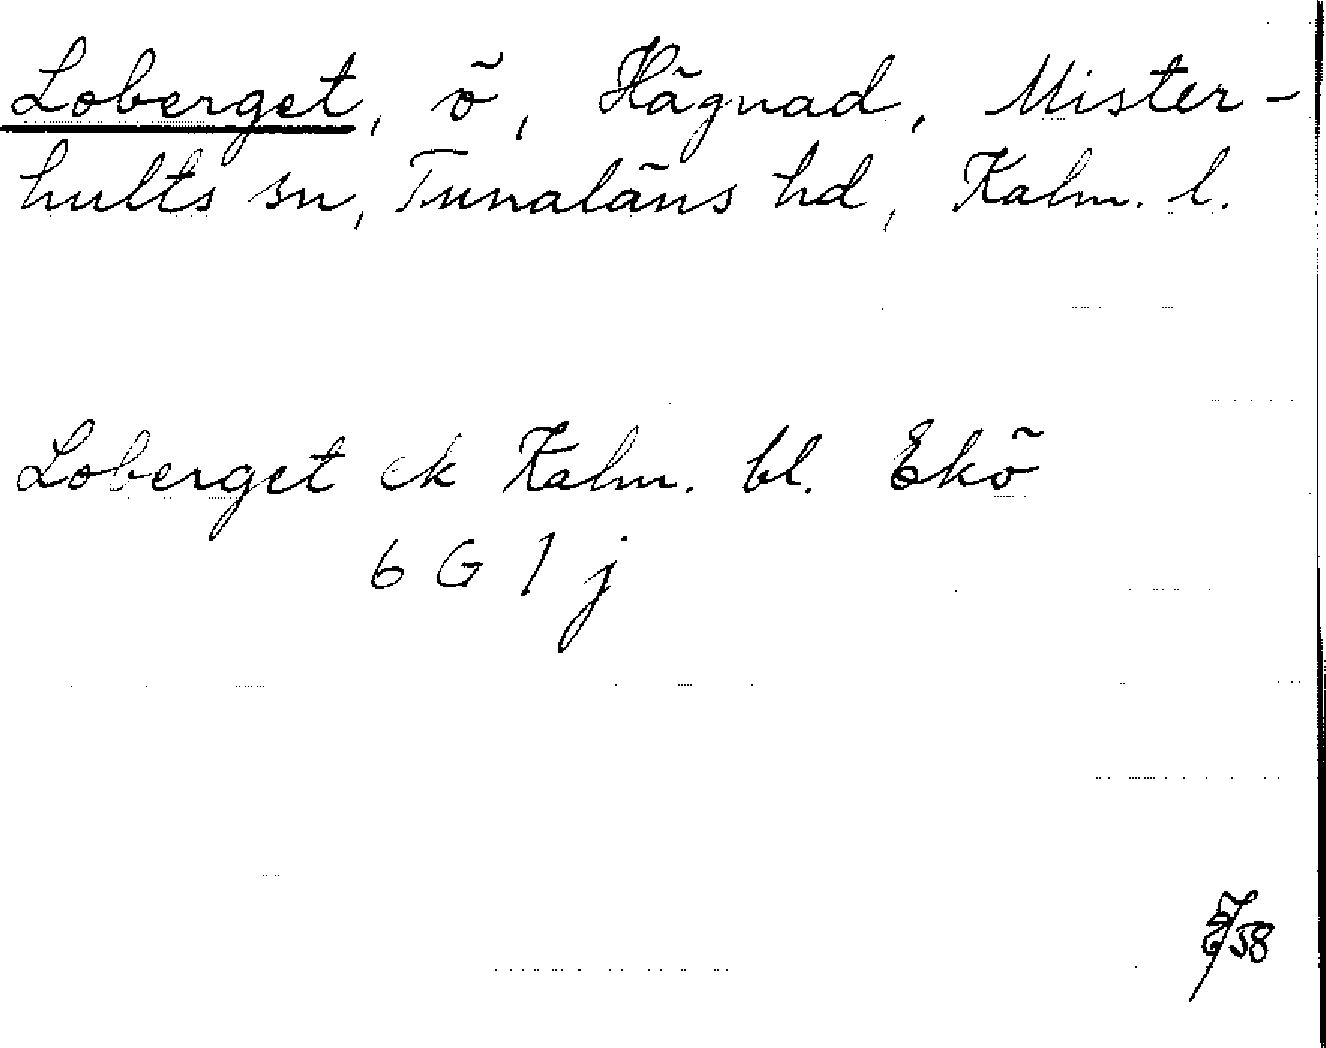 Loberget, ö, Hägnad, Mister-
hults sn, Tunaläns hd, Kalm. l.
Loberget ek Kalm. bl. Ekö
6 G 1 j
58